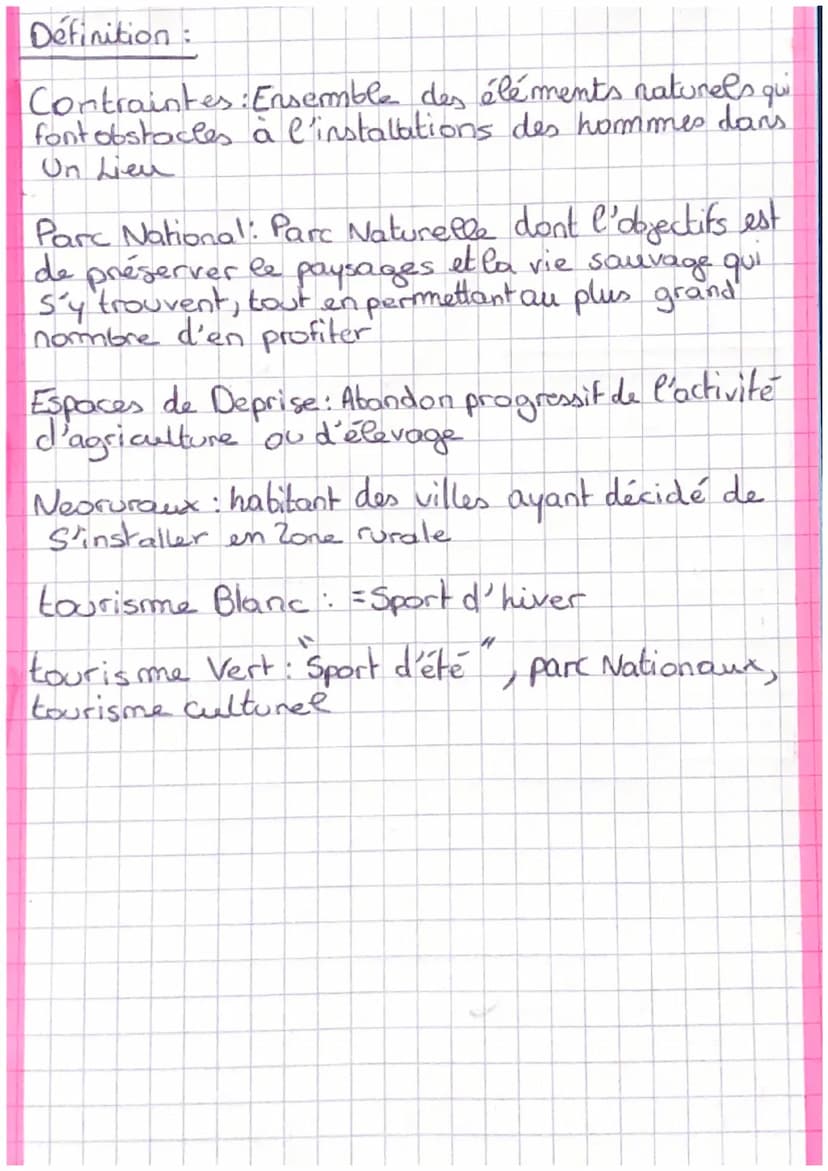 Définition :
Contraintes : Ensemble des éléments naturels qui
font obstacles à l'installations des hommes dans
Un Lieu
Parc National : Parc Naturelle dont l'objectifs est
de préserver le paysages et la vie sauvage qui
s'y trouvent, tout en permettant au plus grand
nombre d'en profiter
Espaces de Deprise : Abandon progressif de l'activité
d'agriculture ou d'élevage
Neoruraux : habitant des villes ayant décidé de
S'installer en Zone rurale
tourisme Blanc : = Sport d'hiver
tourisme Vert : "Sport d'été", parc Nationaux,
tourisme culturel